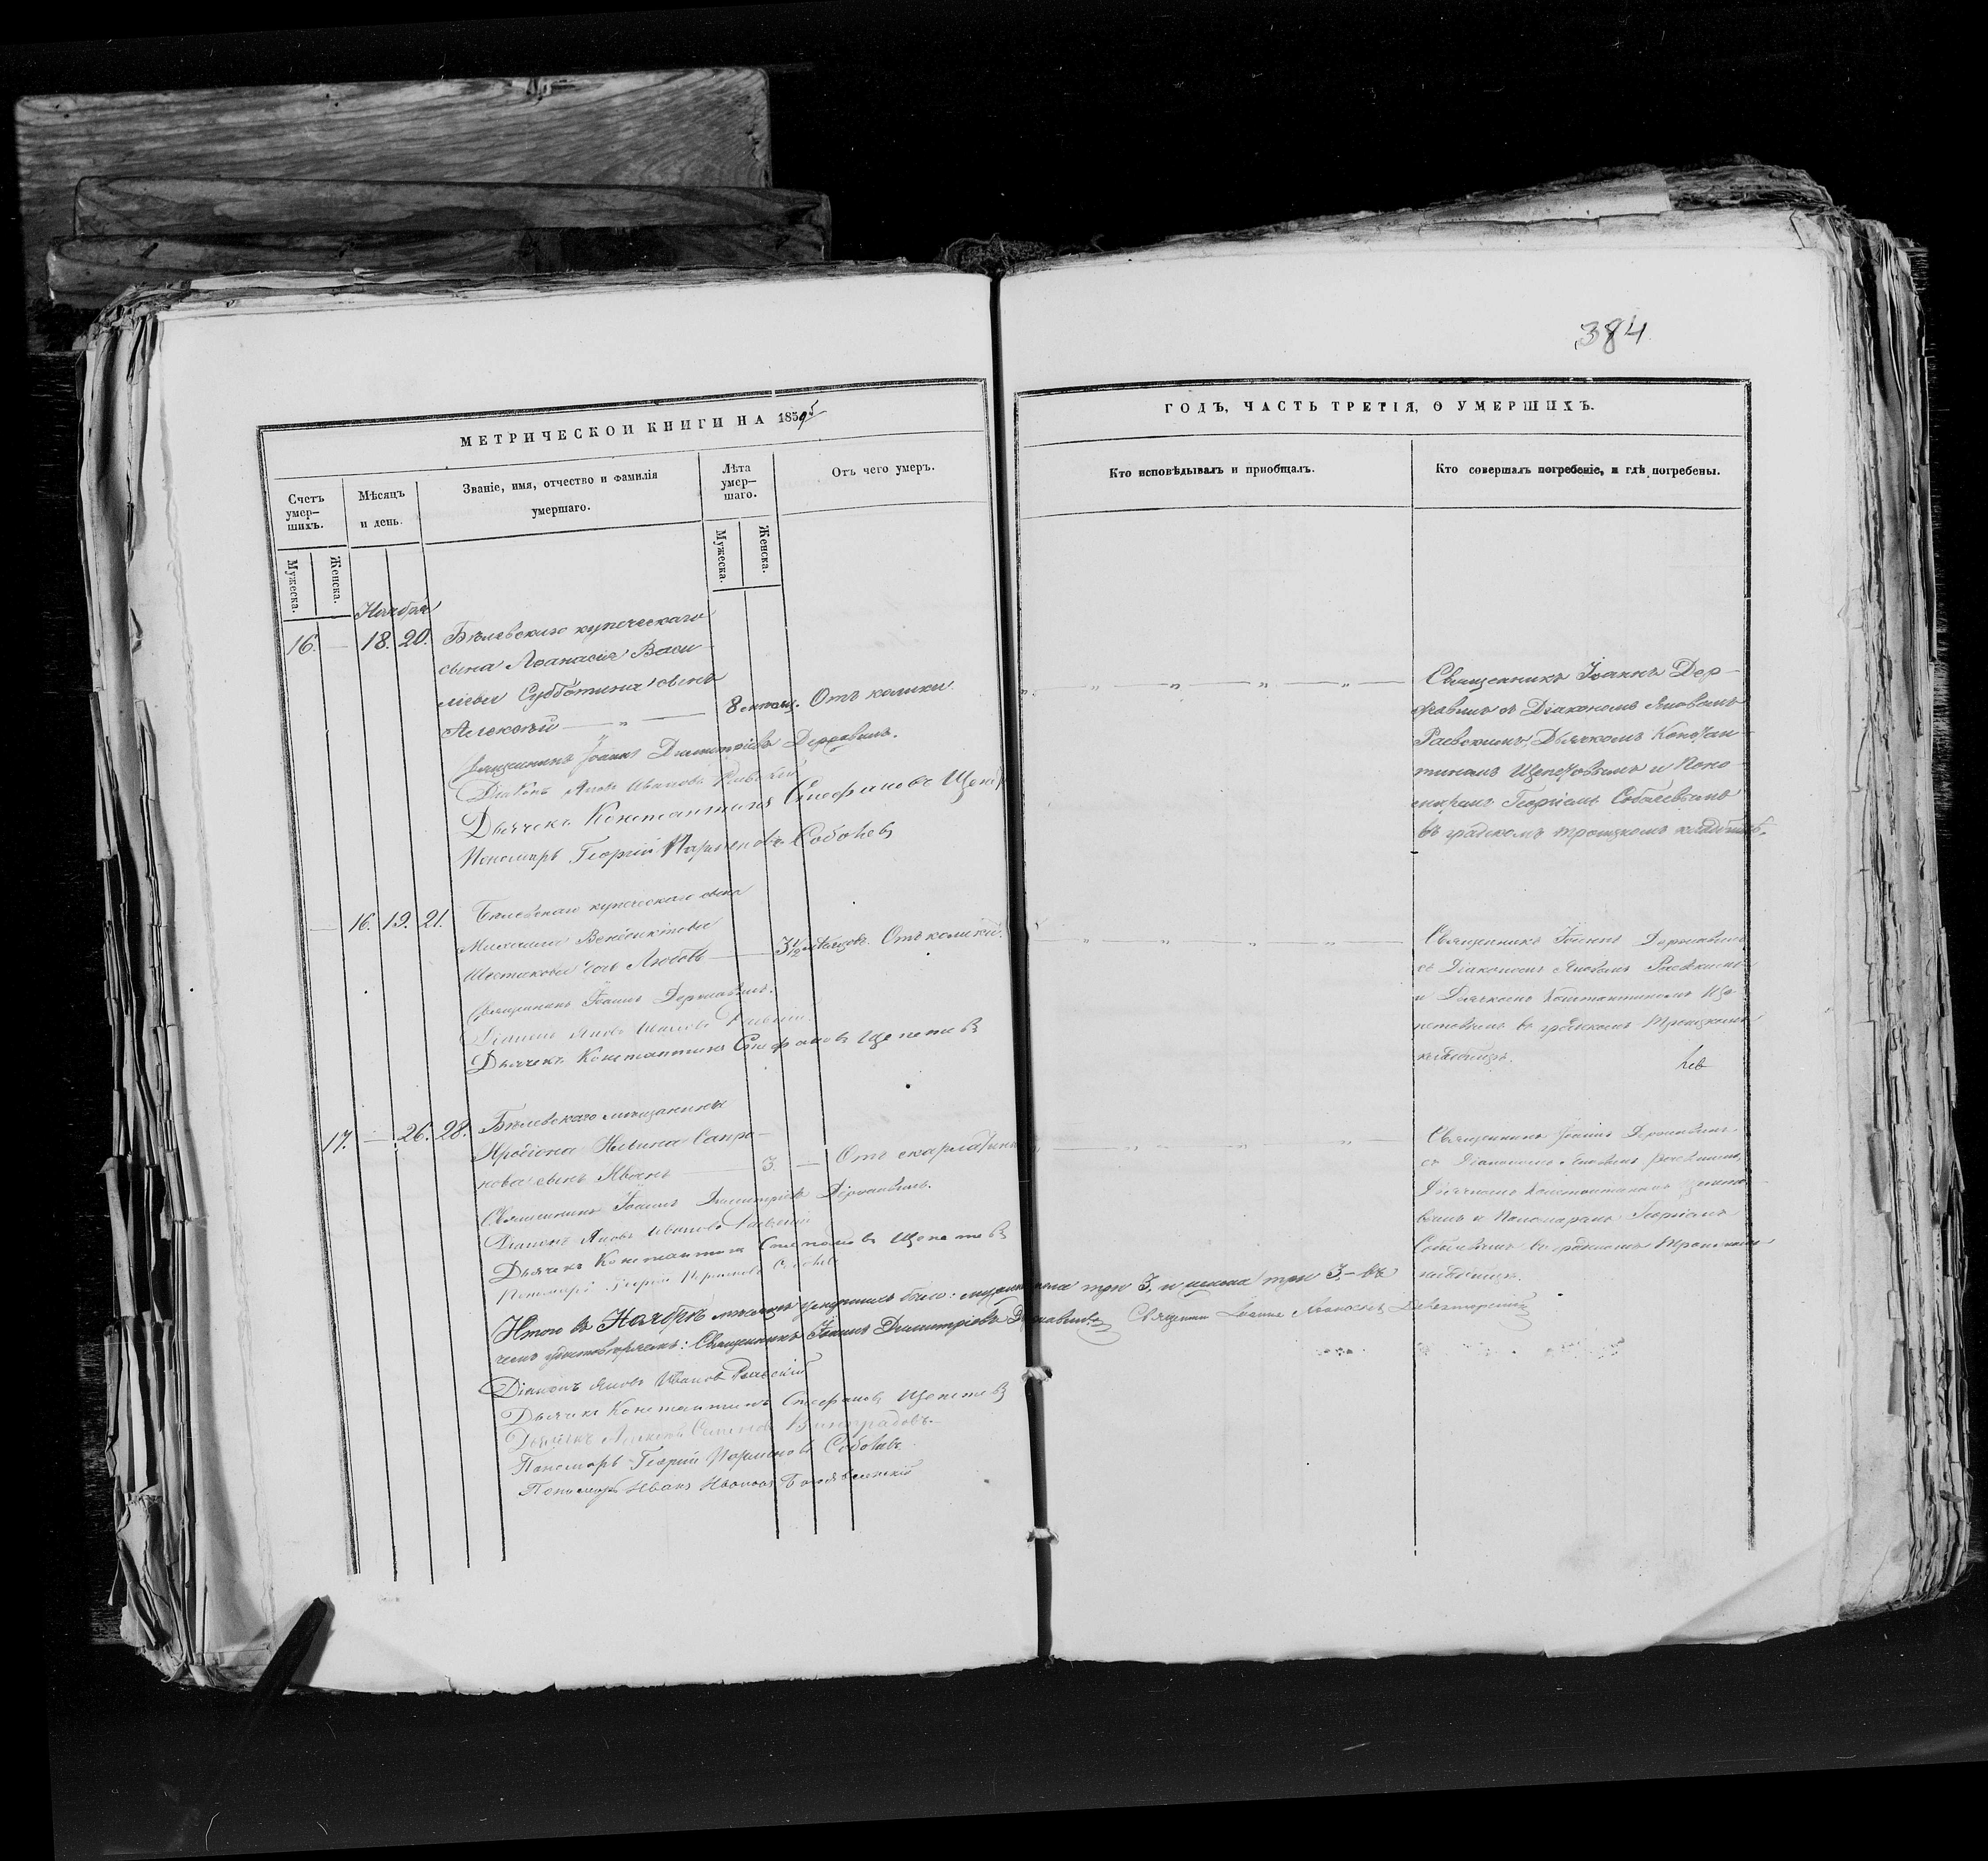 384
МЕТРИЧЕСКОЙ КНИГИ НА 1855
ГОДЪ, ЧАСТЬ ТРЕТІЯ, О УМЕРШИХЪ.
Счетъ умер-
шихъ.
Мѣсяцъ
и день.
Званіе, имя, отчество и фамилія
умершаго.
Лѣта
умер-
шаго.
Отъ чего умеръ.
Кто исповѣдывалъ и приобщалъ.
Кто совершалъ погребеніе, и гдѣ погребены.
Мужеска.
Женска.
Мужеска.
Женска.
Ноября
16. — 18. 20. Бѣлевскаго купеческаго
сына Аѳанасія Васи-
льева Субботина сынъ
Алексѣй — „ — 8 Отъ колики.
Священникъ Іоаннъ Димитріевъ Державинъ.
Діаконъ Яковъ Ивановъ Раевскій
Дьячекъ Константинъ Стефановъ Щепет
Пономарь Георгій Парменовъ Соболев
Священникъ Іоаннъ Дер-
жавинъ съ Діакономъ Яковомъ
Раевскимъ, Дьячкомъ Констан-
тиномъ Щепетовымъ и Поно-
маремъ Георгіемъ Соболевымъ
въ градскомъ троицкомъ кладбищѣ.
— 16. 19. 21. Бѣлевскаго купеческаго сына
Михаила
Шестакова дочь Любовь — 3½ мѣсяцовъ. Отъ колики.
Священникъ Іоаннъ Державинъ.
Діаконъ Яковъ Ивановъ Раевскій
Дьячекъ Константинъ Стефановъ Щепетов
Священникъ Іоаннъ Державинъ
съ Діакономъ Яковомъ Раевскимъ
и Дьячкомъ Константиномъ Ще-
петовымъ въ градскомъ Троицкомъ
кладбищѣ.
17. — 26. 28. Бѣлевскаго мѣщанина
Иродіона
нова сынъ Иванъ — 3. — Отъ скарлатины
Священникъ Іоаннъ Димитріевъ Державинъ.
Діаконъ Яковъ Ивановъ Раевскій
Дьячекъ Константинъ Стефановъ Щепетов
Пономарь Георгій Парменовъ Соболев
Священникъ Іоаннъ Державинъ
съ Діакономъ Яковомъ Раевскимъ,
Дьячкомъ Константиномъ Щепето-
вымъ и Пономаремъ Георгіемъ
Соболевымъ въ градскомъ Троицкомъ
кладбищѣ.
Итого въ Ноябрѣ мѣсяцѣ умершихъ было: мужеска пола три 3, и женска три 3, — въ
чемъ удостовѣряемъ: Священникъ Іоаннъ Димитріевъ Державинъ Священникъ Іоаннъ
Діаконъ Яковъ Ивановъ Раевскій
Дьячекъ Константинъ Стефановъ Щепетов
Дьячекъ Алексѣй Виноградовъ
Пономарь Георгій Парменовъ Соболевъ
Пономарь Иванъ Ивановъ Богоявленскій